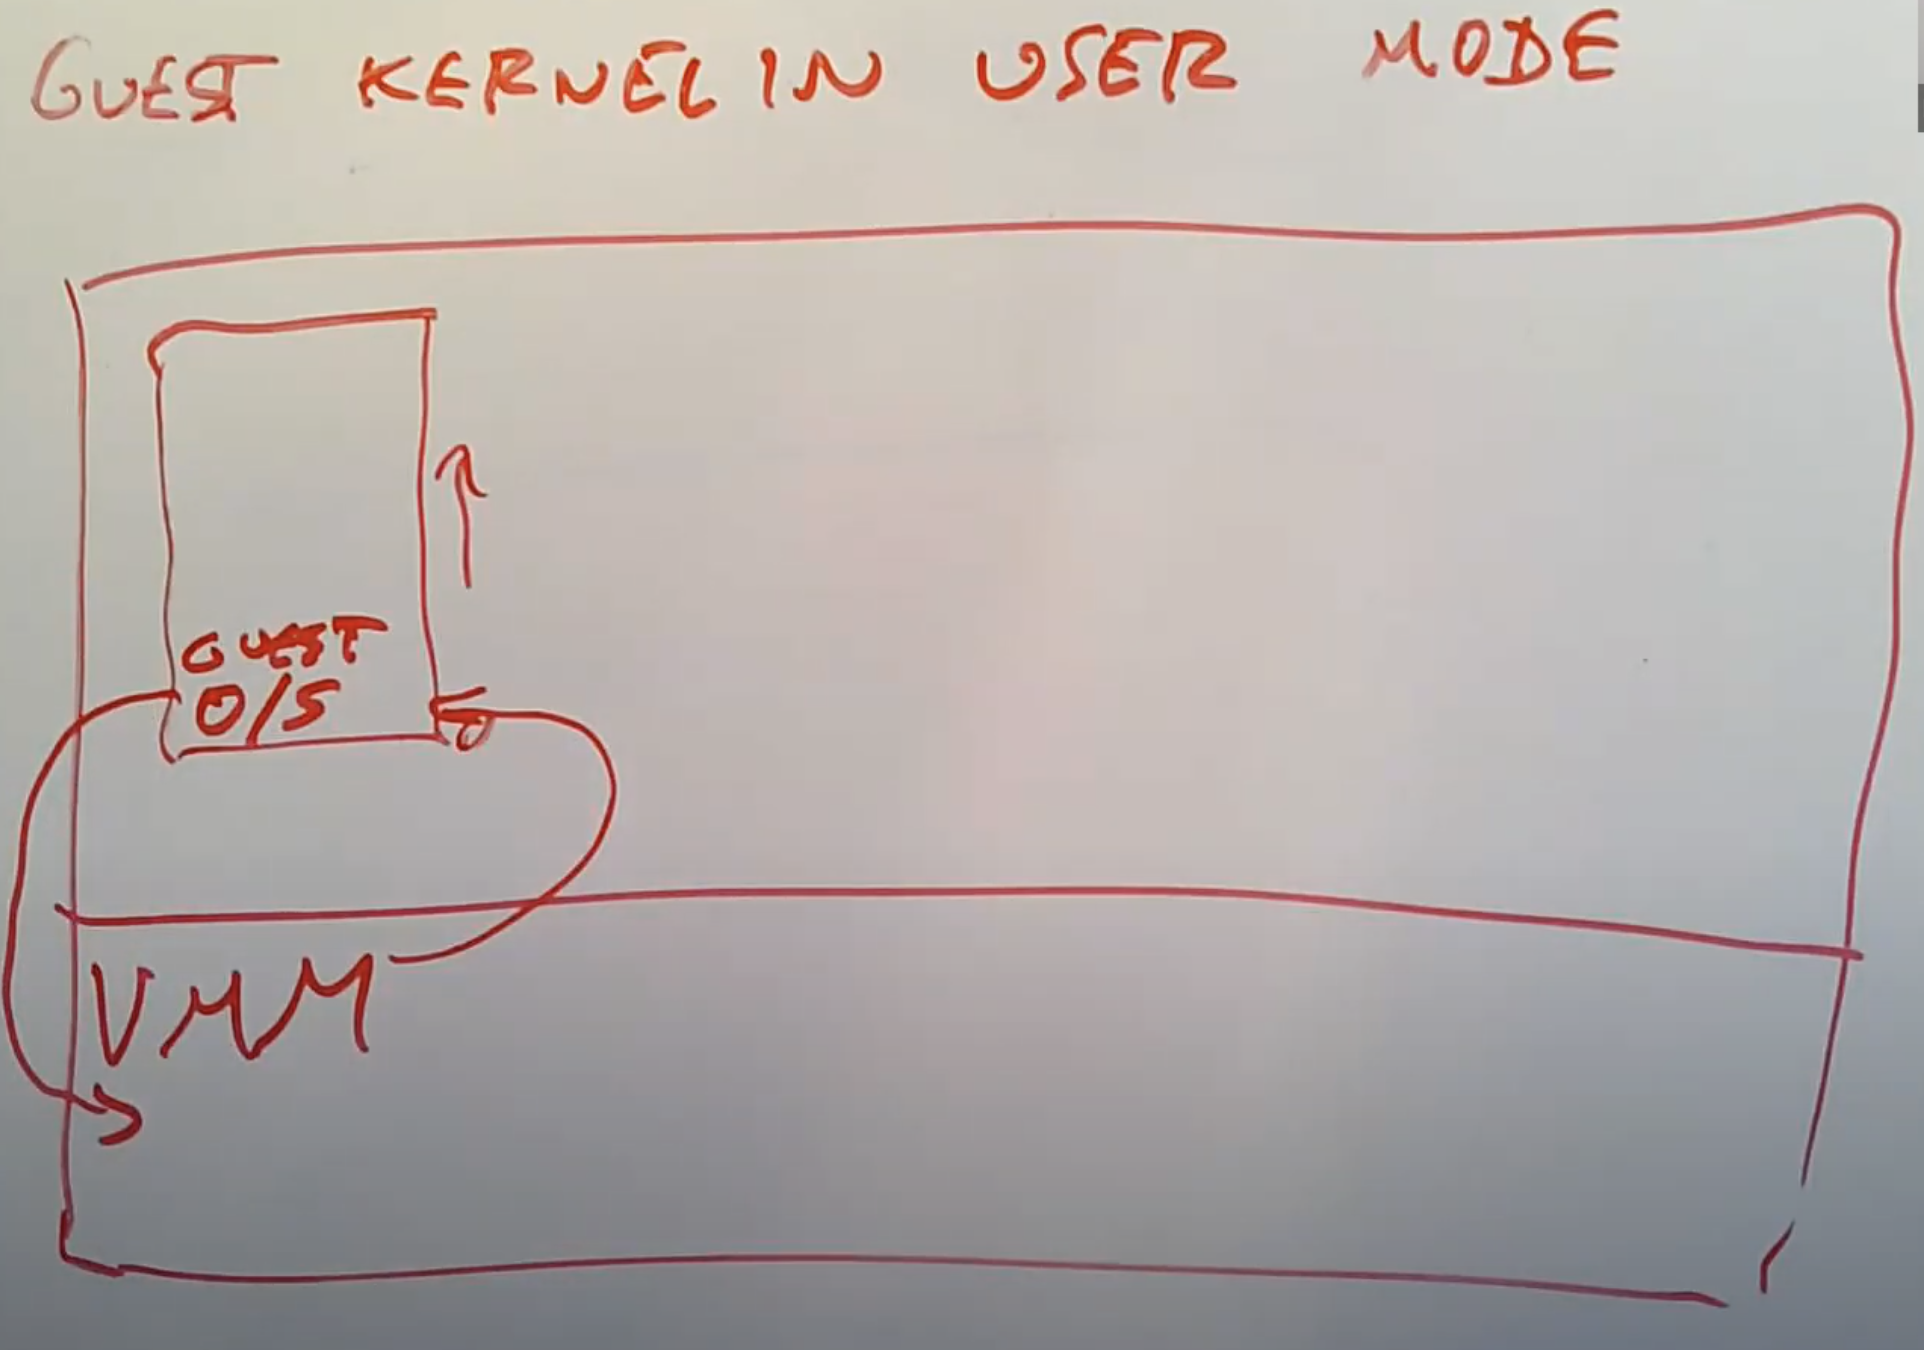 GUEST KERNEL IN USER MODE
GUEST
O/S
VMM